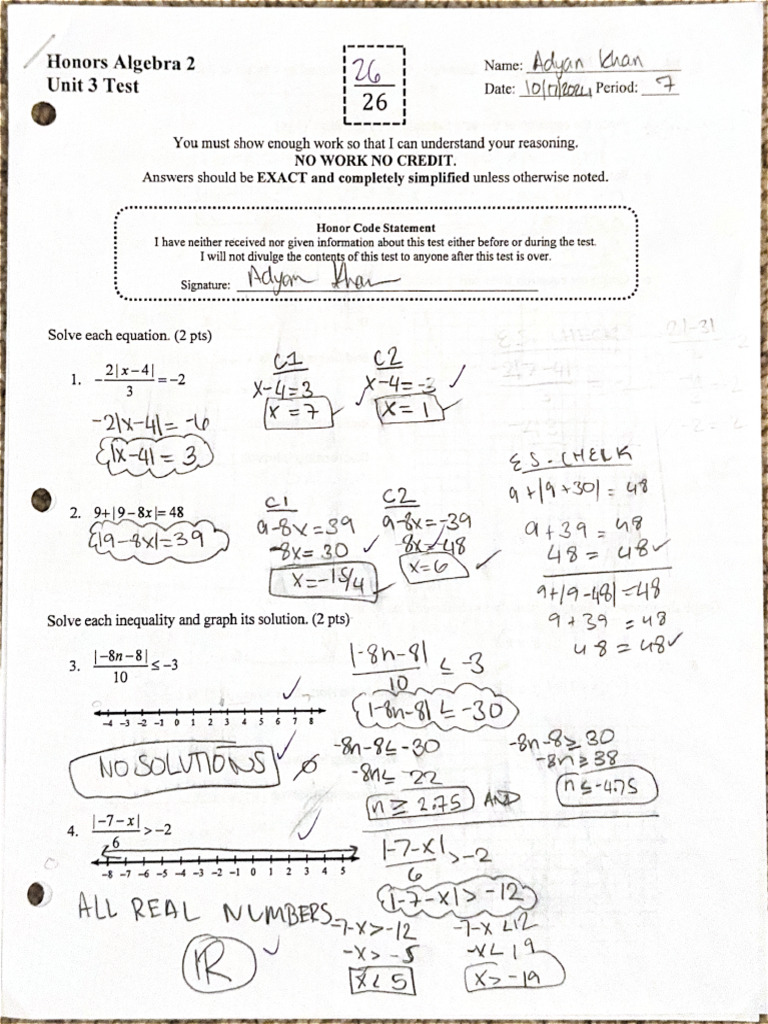 Honors Algebra 2
Unit 3 Test
26
26
Name: Adyan Khan
Date: 10/17/2024 Period: 7
You must show enough work so that I can understand your reasoning.
NO WORK NO CREDIT.
Answers should be EXACT and completely simplified unless otherwise noted.
Honor Code Statement
I have neither received nor given information about this test either before or during the test.
I will not divulge the contents of this test to anyone after this test is over.
Signature: Adyan Khan
Solve each equation. (2 pts)
1. -2|x-4|/3 = -2
-2|x-4| = -6
|x-4| = 3
C1
x-4=3
x = 7
C2
x-4=-3
x=1
2. 9+|9-8x|=48
|9-8x|=39
C1
9-8x=39
-8x=30
x=-15/4
C2
9-8x=-39
-8x=-48
x=6
E.S. CHECK
9+|9+30|=48
9+39=48
48=48
9+|9-48|=48
9+39=48
48=48
Solve each inequality and graph its solution. (2 pts)
3. |-8n-8|/10 ≤ -3
-4 -3 -2 -1 0 1 2 3 4 5 6 7 8
NO SOLUTIONS ∅
|-8n-8|/10 ≤ -3
|-8n-8| ≤ -30
-8n-8≤-30
-8n≤-22
n ≥ 2.75 AND
-8n-8≥30
-8n≥38
n≤-4.75
4. |-7-x|/6 > -2
-8 -7 -6 -5 -4 -3 -2 -1 0 1 2 3 4 5
ALL REAL NUMBERS
ℝ
|-7-x|/6 > -2
|-7-x| > -12
-7-x>-12
-x>-5
x<5
-7-x<12
-x<19
x>-19